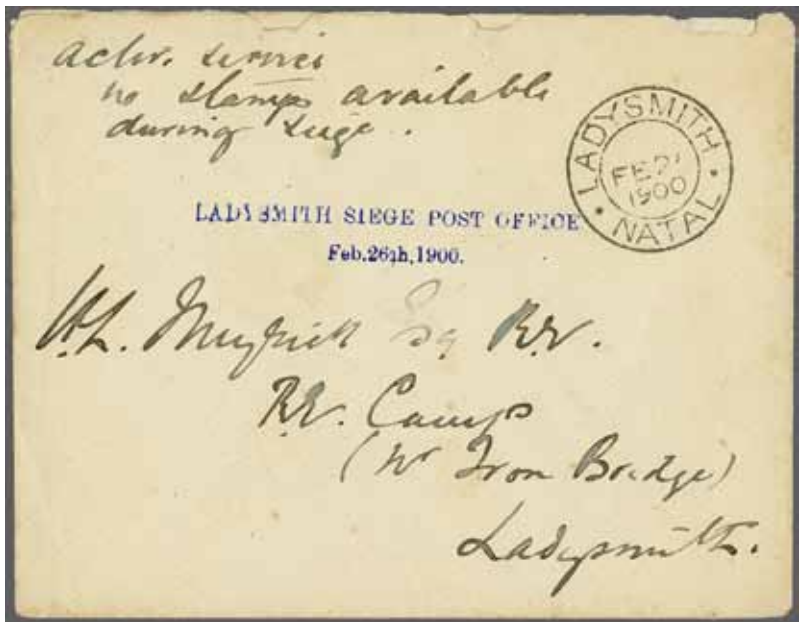 activ. service
no stamps available
during siege.
LADYSMITH
NATAL
FE 27
1900
LADYSMITH SIEGE POST OFFICE
Feb. 26th, 1900.
H.L. Esq R.E.
R.E. Camp
(Nr Iron Bridge)
Ladysmith.